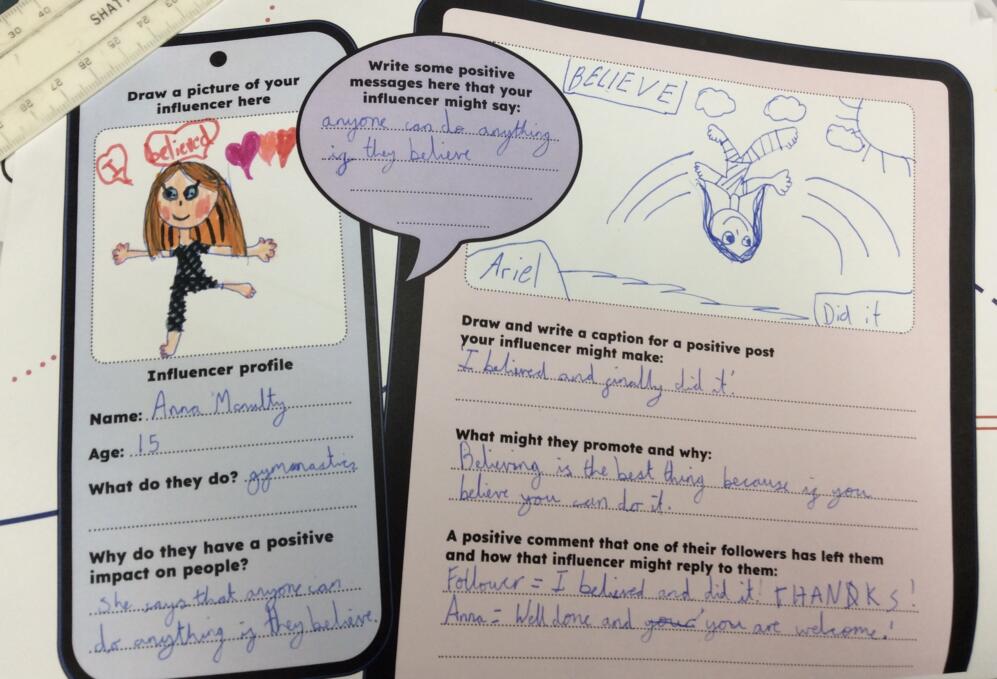 SHATT
Draw a picture of your
influencer here
I believed
Influencer profile
Name: Anna Mcnulty
Age: 15
What do they do? gymnastics
Why do they have a positive
impact on people?
She says that anyone can
do anything if they believe.
Write some positive
messages here that your
influencer might say:
anyone can do anything
if they believe
BELIEVE
Ariel
Did it
Draw and write a caption for a positive post
your influencer might make:
I believed and finally did it!
What might they promote and why:
Believing is the best thing because if you
believe you can do it.
A positive comment that one of their followers has left them
and how that influencer might reply to them:
Follower = I believed and did it! THANKS!
Anna = Well done and you are welcome!